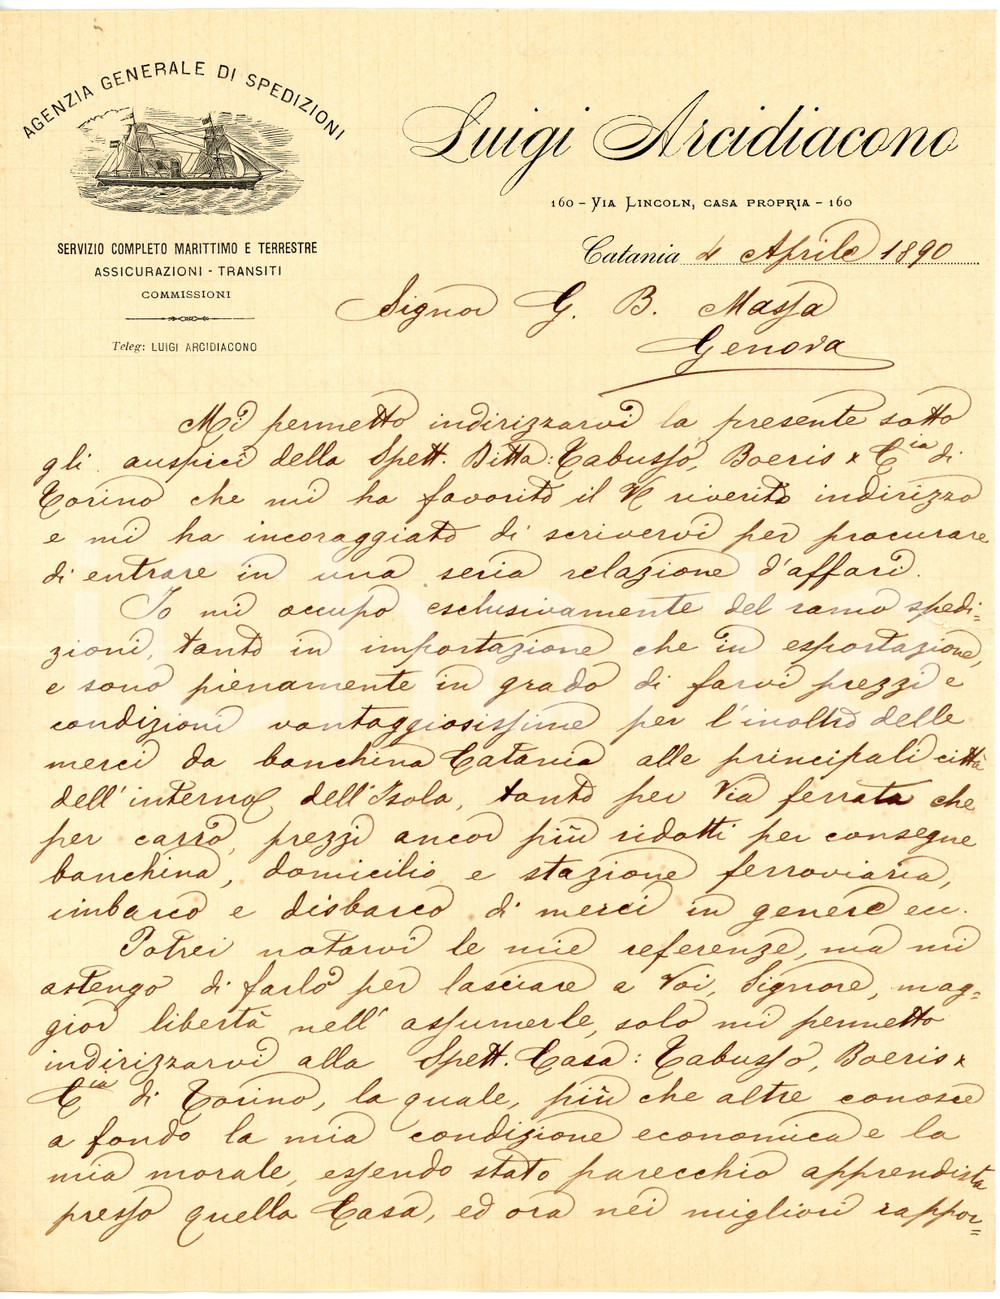 AGENZIA GENERALE DI SPEDIZIONI
SERVIZIO COMPLETO MARITTIMO E TERRESTRE
ASSICURAZIONI - TRANSITI
COMMISSIONI
Teleg: LUIGI ARCIDIACONO
Luigi Arcidiacono
160 - VIA LINCOLN, CASA PROPRIA - 160
Catania 4 Aprile 1890
Signor G. B. Massa
Genova
Mi permetto indirizzarvi la presente sotto
gli auspici della Spett. Ditta: Tabusso, Boeris & Cia di
Torino che mi ha favorito il V riverito indirizzo
e mi ha incoraggiato di scrivervi per procurare
di entrare in una seria relazione d'affari.
Io mi occupo esclusivamente del ramo spedi=
zioni, tanto in importazione che in esportazione,
e sono pienamente in grado di farvi prezzi e
condizioni vantaggiosissime per l'inoltro delle
merci da banchina Catania alle principali città
dell'interno dell'Isola, tanto per via ferrata che
per carro, prezzi ancor più ridotti per consegne
banchina, domicilio e stazione ferroviaria,
imbarco e disbarco di merci in genere ecc.
Potrei notarvi le mie referenze, ma mi
astengo di farlo per lasciare a Voi, Signore, mag=
gior libertà nell'assumerle, solo mi permetto
indirizzarvi alla Spett. Casa: Tabusso, Boeris &
Cia di Torino, la quale, più che altre conosce
a fondo la mia condizione economica e la
mia morale, essendo stato parecchio apprendista
presso quella Casa, ed ora nei migliori rappor=